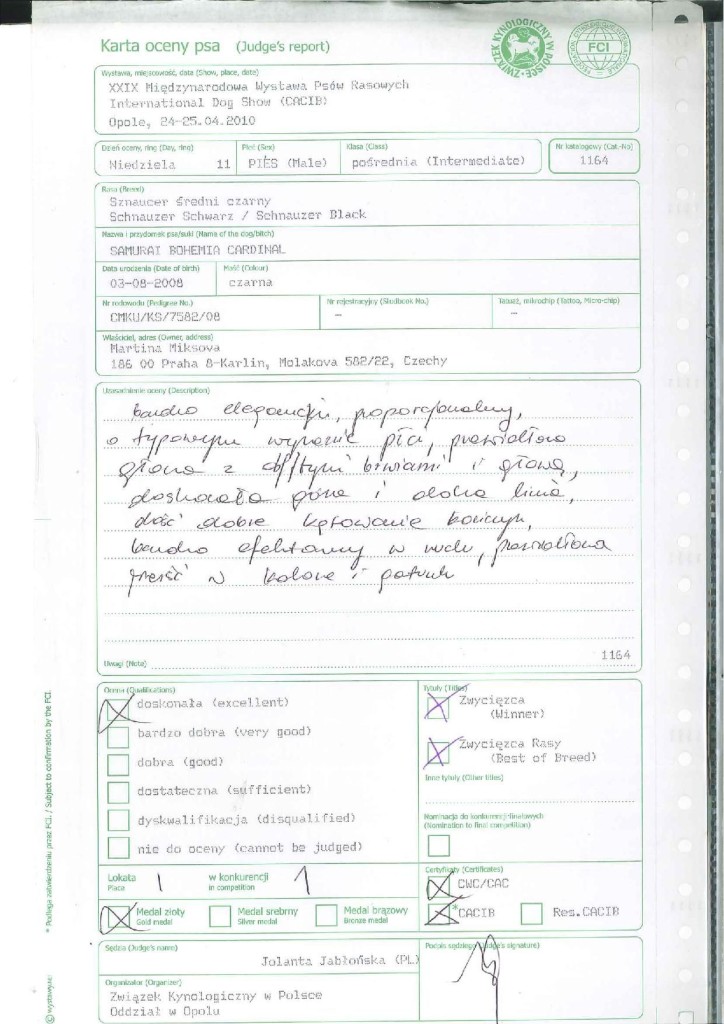 Karta oceny psa (Judge's report)
ZWIĄZEK KYNOLOGICZNY W POLSCE
FCI
Wystawa, miejscowość, data (Show, place, date)
XXIX Międzynarodowa Wystawa Psów Rasowych
International Dog Show (CACIB)
Opole, 24-25.04.2010
Dzień oceny, ring (Day, ring) Płeć (Sex) Klasa (Class) Nr katalogowy (Cat.-No)
Niedziela 11 PIES (Male) pośrednia (Intermediate) 1164
Rasa (Breed)
Sznaucer średni czarny
Schnauzer Schwarz / Schnauzer Black
Nazwa i przydomek psa/suki (Name of the dog/bitch)
SAMURAI BOHEMIA CARDINAL
Data urodzenia (Date of birth) Maść (Colour)
03-08-2008 czarna
Nr rodowodu (Pedigree No.) Nr rejestracyjny (Studbook No.) Tatuaż, mikrochip (Tattoo, Micro-chip)
CMKU/KS/7582/08 – –
Właściciel, adres (Owner, address)
Martina Miksova
186 00 Praha 8-Karlin, Molakova 582/22, Czechy
Uzasadnienie oceny (Description)
bardzo elegancki, proporcjonalny,
o typowym wyrazie płci, prawidłowa
głowa z obfitymi brwiami i głową,
doskonała górna i dolna linia,
dość dobre kątowanie kończyn,
bardzo efektowny w ruchu, prawidłowa
sierść w kolorze i gatunku
1164
Uwagi (Note)
Ocena (Qualifications)
doskonała (excellent)
bardzo dobra (very good)
dobra (good)
dostateczna (sufficient)
dyskwalifikacja (disqualified)
nie do oceny (cannot be judged)
Tytuły (Titles)
Zwycięzca
(Winner)
Zwycięzca Rasy
(Best of Breed)
Inne tytuły (Other titles)
Nominacja do konkurencji finałowych
(Nomination to final competition)
Lokata 1 w konkurencji 1
Place in competition
Medal złoty Medal srebrny Medal brązowy
Gold medal Silver medal Bronze medal
Certyfikaty (Certificates)
CWC/CAC
*CACIB Res.CACIB
Sędzia (Judge's name)
Jolanta Jabłońska (PL)
Podpis sędziego (Judge's signature)
Organizator (Organizer)
Związek Kynologiczny w Polsce
Oddział w Opolu
* Podlega zatwierdzeniu przez FCI. / Subject to confirmation by the FCI.